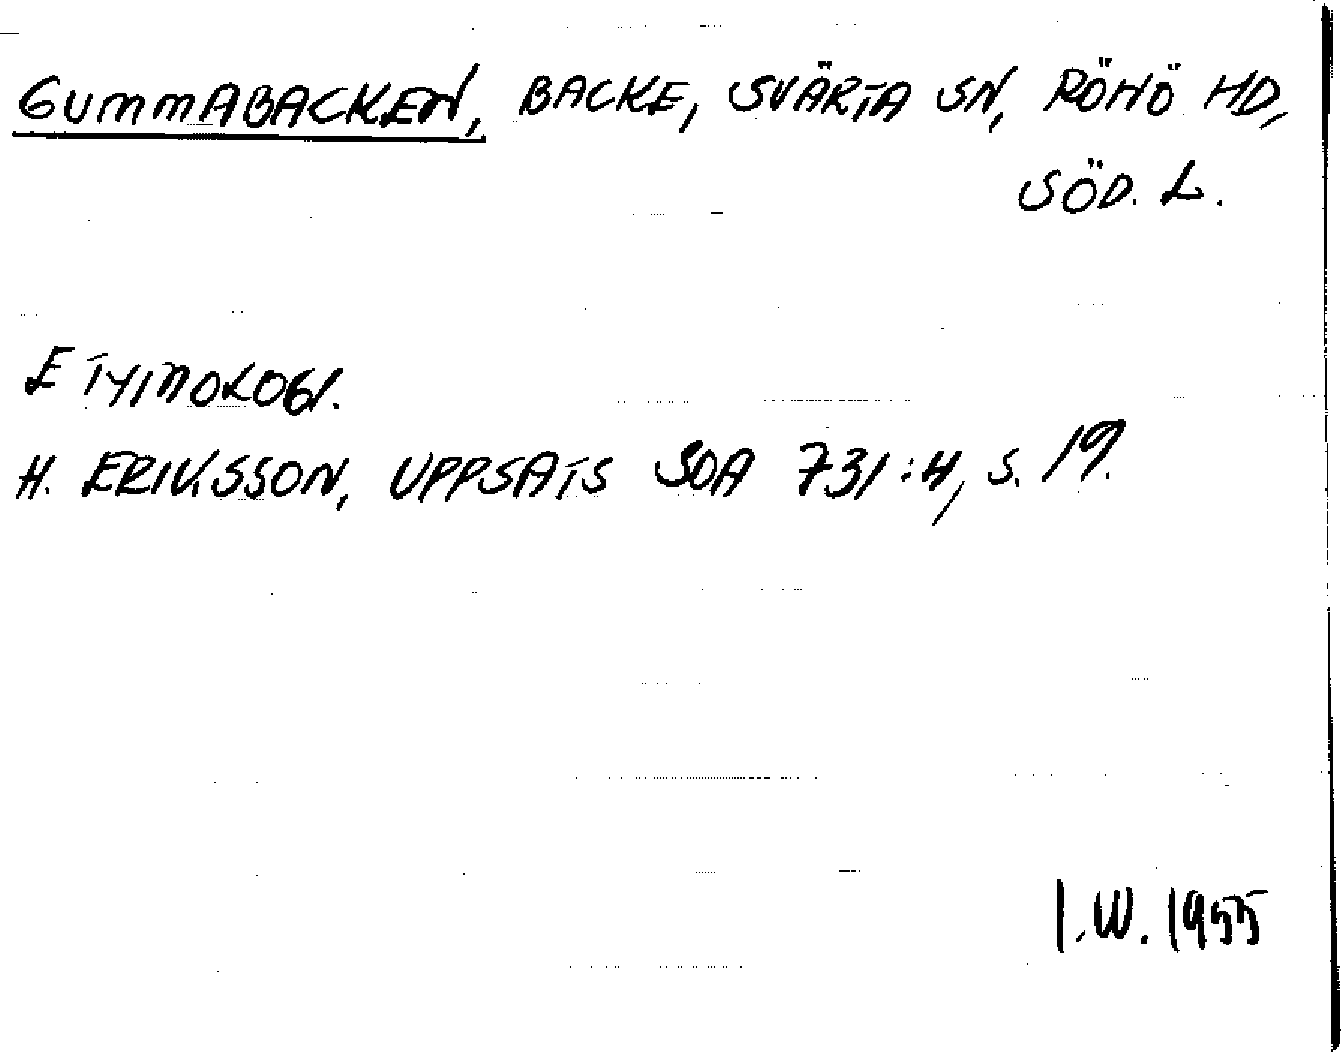 GUMMABACKEN, BACKE, SVÄRTA SN, RÖNÖ HD,
SÖD. L.
ETYMOLOGI.
H. ERIKSSON, UPPSATS SOA 731:4, S. 19.
I.W. 1955